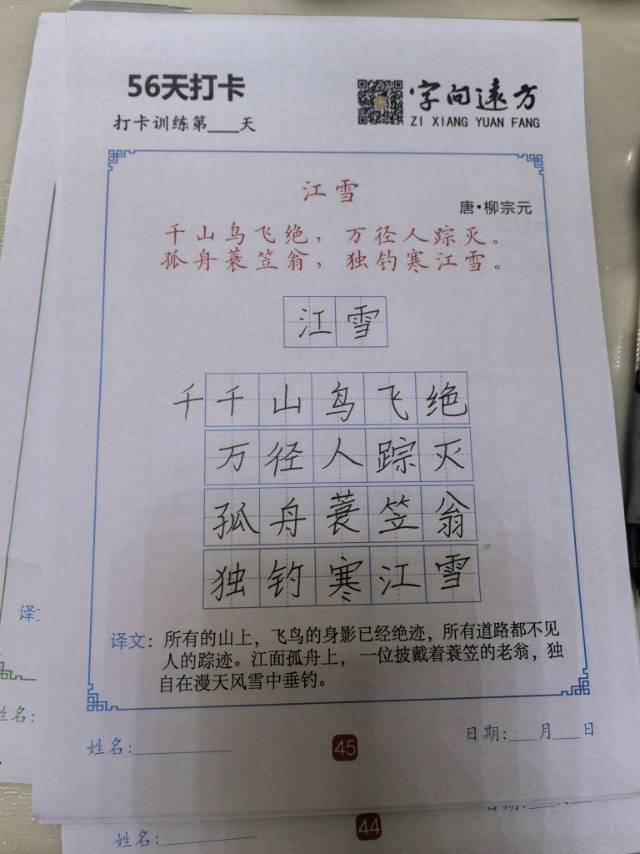 56天打卡
字向远方
打卡训练第___天
ZI XIANG YUAN FANG
江雪
唐·柳宗元
千山鸟飞绝，万径人踪灭。
孤舟蓑笠翁，独钓寒江雪。
江雪
千千山鸟飞绝
万径人踪灭
孤舟蓑笠翁
独钓寒江雪
译文：所有的山上，飞鸟的身影已经绝迹，所有道路都不见
人的踪迹。江面孤舟上，一位披戴着蓑笠的老翁，独
自在漫天风雪中垂钓。
姓名：
45
日期：___月___日
译
姓名：
姓名：
44